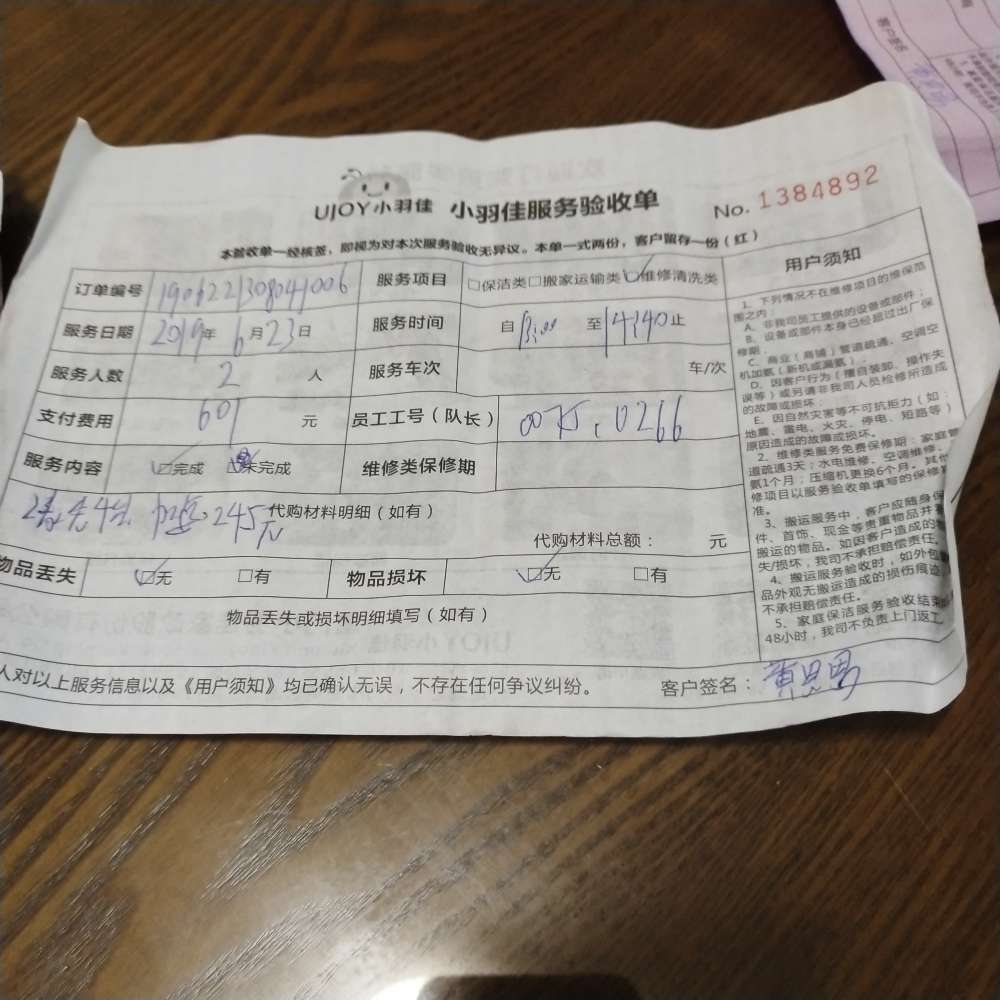 UJOY小羽佳 小羽佳服务验收单 No. 1384892
本签收单一经核签，即视为对本次服务验收无异议。本单一式两份，客户留存一份（红）
订单编号 190622130804006 服务项目 □保洁类□搬家运输类□维修清洗类
服务日期 2019年 6月23日 服务时间 自 至 14:40止
服务人数 2 人 服务车次 车/次
支付费用 601 元 员工工号（队长） 0266
服务内容 □完成 □未完成 维修类保修期
245元 代购材料明细（如有）
代购材料总额： 元
物品丢失 □无 □有 物品损坏 □无 □有
物品丢失或损坏明细填写（如有）
人对以上服务信息以及《用户须知》均已确认无误，不存在任何争议纠纷。 客户签名：
用户须知
1、下列情况不在维修项目的维保范
围之内：
A、非我司员工提供的设备或部件；
B、设备或部件本身已经超过出厂保
修期；
C、商业（商铺）管道疏通、空调空
机加氨（新机或漏氨）；
D、因客户行为（擅自装卸、操作失
误等）或另请非我司人员检修所造成
的故障或损坏；
E、因自然灾害等不可抗拒力（如：
地震、雷电、火灾、停电、短路等）
原因造成的故障或损坏。
2、维修类服务免费保修期：家庭管
道疏通3天；水电维修、空调维修、
氨1个月；压缩机更换6个月，其他
修项目以服务验收单填写的保修期
准。
3、搬运服务中，客户应随身保
件、首饰、现金等贵重物品并
搬运的物品。如因客户造成的
失/损坏，我司不承担赔偿责任。
4、搬运服务验收时，如外包
品外观无搬运造成的损伤痕迹，
不承担赔偿责任。
5、家庭保洁服务验收结束
48小时，我司不负责上门返工。
客户签名